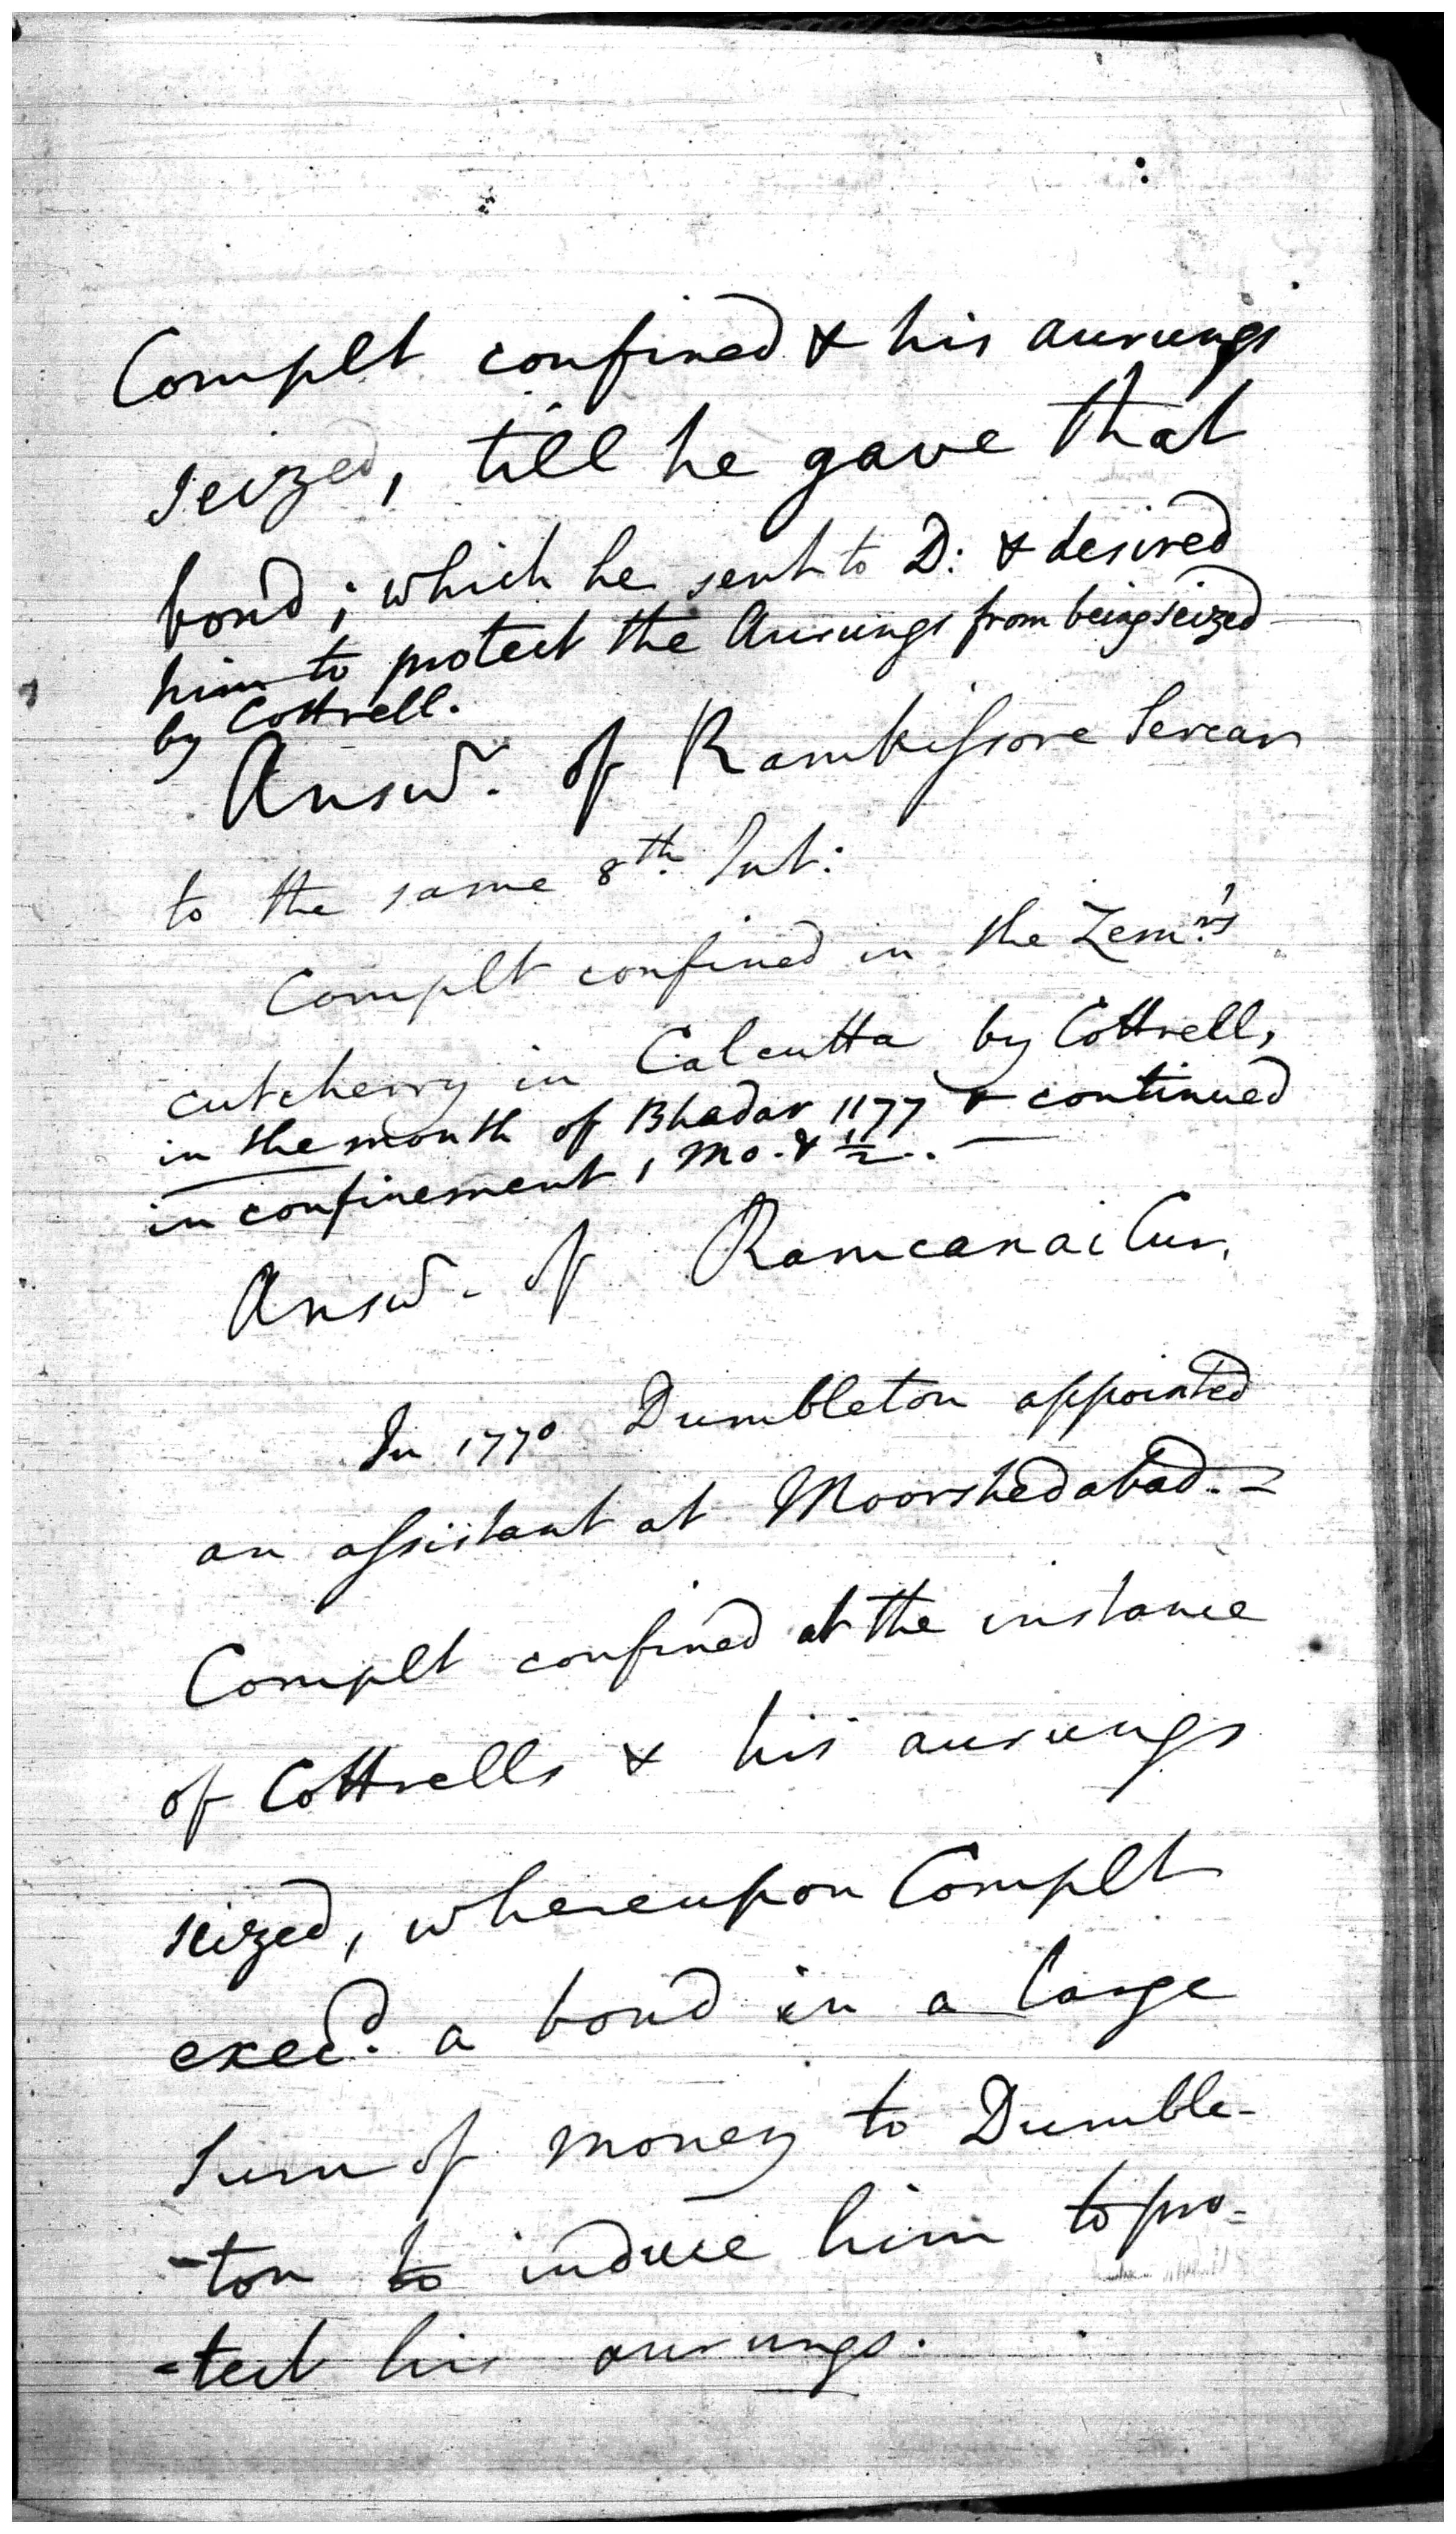 Complt confined & his aurungs
seized, till he gave that
bond; which he sent to D: & desired
him to protect the Aurungs from being seized
by Cottrell.
Answr. of Ramkissore Sercar
to the same 8th. Int:
Complt confined in the Zemr's
cutcherry in Calcutta by Cottrell,
in the month of Bhadar 1177 & continued
in confinement 1 Mo. & 1/2.
Answ. of Ramcanai Cur.
In 1770 Dumbleton appointed
an assistant at Moorshedabad. -
Complt confined at the instance
of Cottrells & his aurungs
seized, whereupon Complt
execd. a bond in a large
Sum of money to Dumble-
-ton to induce him to pro-
-tect his aurungs.